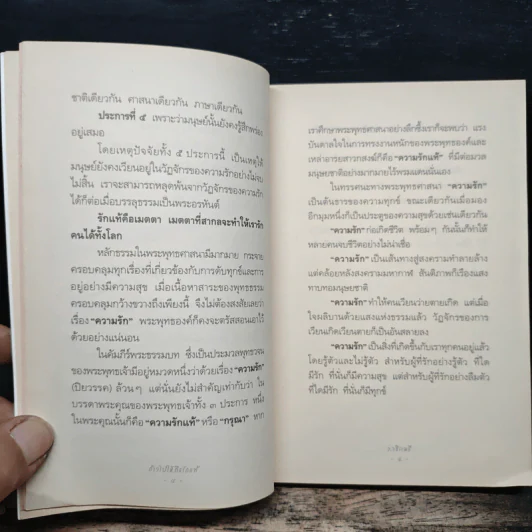 ชาติเดียวกัน ศาสนาเดียวกัน ภาษาเดียวกัน
ประการที่ ๕ เพราะว่ามนุษย์นั้นยังคงรู้สึกพร่อง
อยู่เสมอ
โดยเหตุปัจจัยทั้ง ๕ ประการนี้ เป็นเหตุให้
มนุษย์ยังคงเวียนอยู่ในวัฏจักรของความรักอย่างไม่จบ
ไม่สิ้น เราจะสามารถหลุดพ้นจากวัฏจักรของความรัก
ได้ก็ต่อเมื่อบรรลุธรรมเป็นพระอรหันต์
รักแท้คือเมตตา เมตตาที่สากลจะทำให้เรารัก
คนได้ทั้งโลก
หลักธรรมในพระพุทธศาสนามีมากมาย กระจาย
ครอบคลุมทุกเรื่องที่เกี่ยวข้องกับการดับทุกข์และการ
อยู่อย่างมีความสุข เมื่อเนื้อหาสาระของพุทธธรรม
ครอบคลุมกว้างขวางถึงเพียงนี้ จึงไม่ต้องสงสัยเลยว่า
เรื่อง "ความรัก" พระพุทธองค์ก็คงจะตรัสสอนเอาไว้
ด้วยอย่างแน่นอน
ในคัมภีร์พระธรรมบท ซึ่งเป็นประมวลพุทธวจนะ
ของพระพุทธเจ้ามีอยู่หมวดหนึ่งว่าด้วยเรื่อง "ความรัก"
(ปิยวรรค) ล้วนๆ แต่นั่นยังไม่สำคัญเท่ากับว่า ใน
บรรดาพระคุณของพระพุทธเจ้าทั้ง ๓ ประการ หนึ่ง
ในพระคุณนั้นก็คือ "ความรักแท้" หรือ "กรุณา" หาก
เราศึกษาพระพุทธศาสนาอย่างลึกซึ้งเราก็จะพบว่า แรง
บันดาลใจในการทรงงานหนักของพระพุทธองค์และ
เหล่าอารยสาวกสงฆ์ก็คือ "ความรักแท้" ที่มีต่อมวล
มนุษยชาติอย่างมากมายไร้พรมแดนนั่นเอง
ในทรรศนะทางพระพุทธศาสนา "ความรัก"
เป็นต้นธารของความทุกข์ ขณะเดียวกันเมื่อมอง
อีกมุมหนึ่งก็เป็นประตูของความสุขด้วยเช่นเดียวกัน
"ความรัก" ก่อเกิดชีวิต พร้อมๆ กันนั้นก็ทำให้
หลายคนจบชีวิตอย่างไม่น่าเชื่อ
"ความรัก" เป็นเส้นทางสู่สงครามทำลายล้าง
แต่คล้อยหลังสงครามมหากาฬ สันติภาพก็เรืองแสง
ทาบทอมนุษยชาติ
"ความรัก" ทำให้คนเวียนว่ายตายเกิด แต่เมื่อ
ใจผลิบานด้วยแสงแห่งธรรมแล้ว วัฏจักรของการ
เวียนเกิดเวียนตายก็เป็นอันสลายลง
"ความรัก" เป็นสิ่งที่เกิดขึ้นกับเราทุกคนอยู่แล้ว
โดยรู้ตัวและไม่รู้ตัว สำหรับผู้ที่รักอย่างรู้ตัว ที่ใด
มีรัก ที่นั่นก็มีความสุข แต่สำหรับผู้ที่รักอย่างลืมตัว
ที่ใดมีรัก ที่นั่นก็มีทุกข์